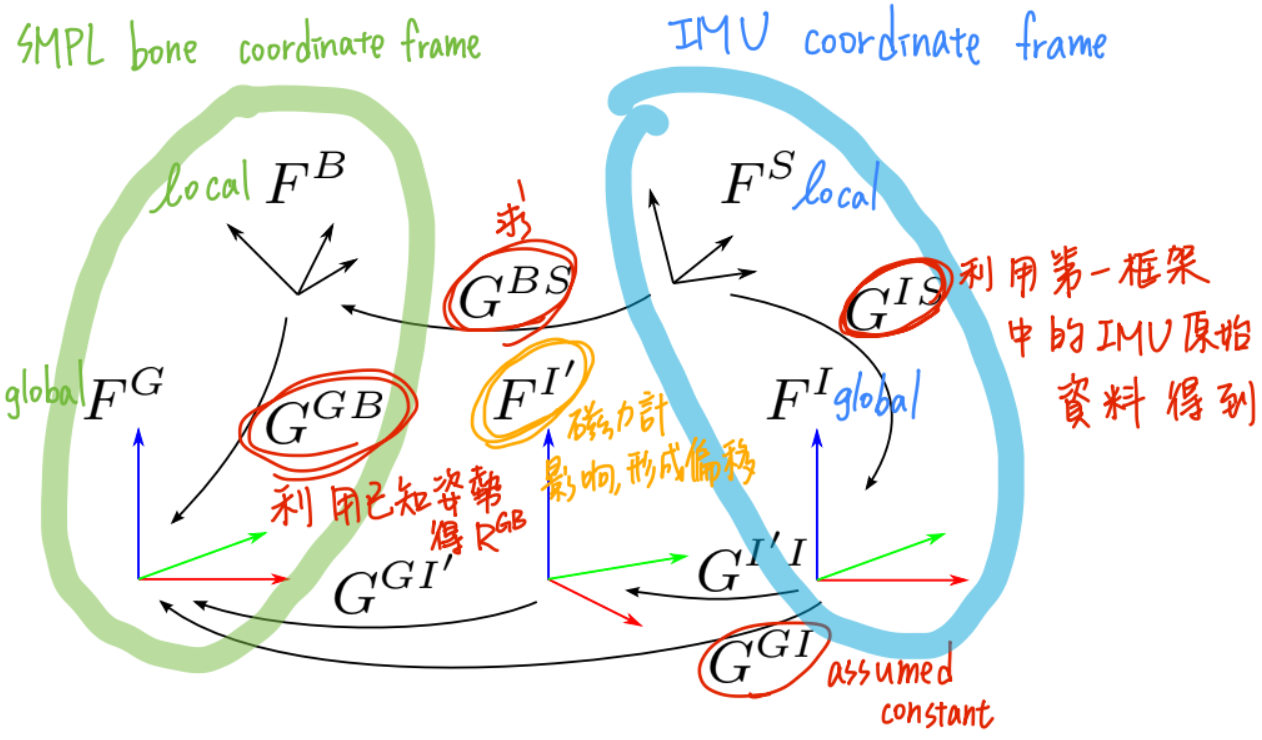 SMPL bone coordinate frame
IMU coordinate frame
local F^B
F^S local
求
G^{BS}
G^{IS}
利用第一框架
中的IMU原始
資料得到
global F^G
G^{GB}
F^{I'}
F^I global
磁力計
影响,形成偏移
利用已知姿勢
得R^{GB}
G^{GI'}
G^{I'I}
G^{GI}
assumed
constant